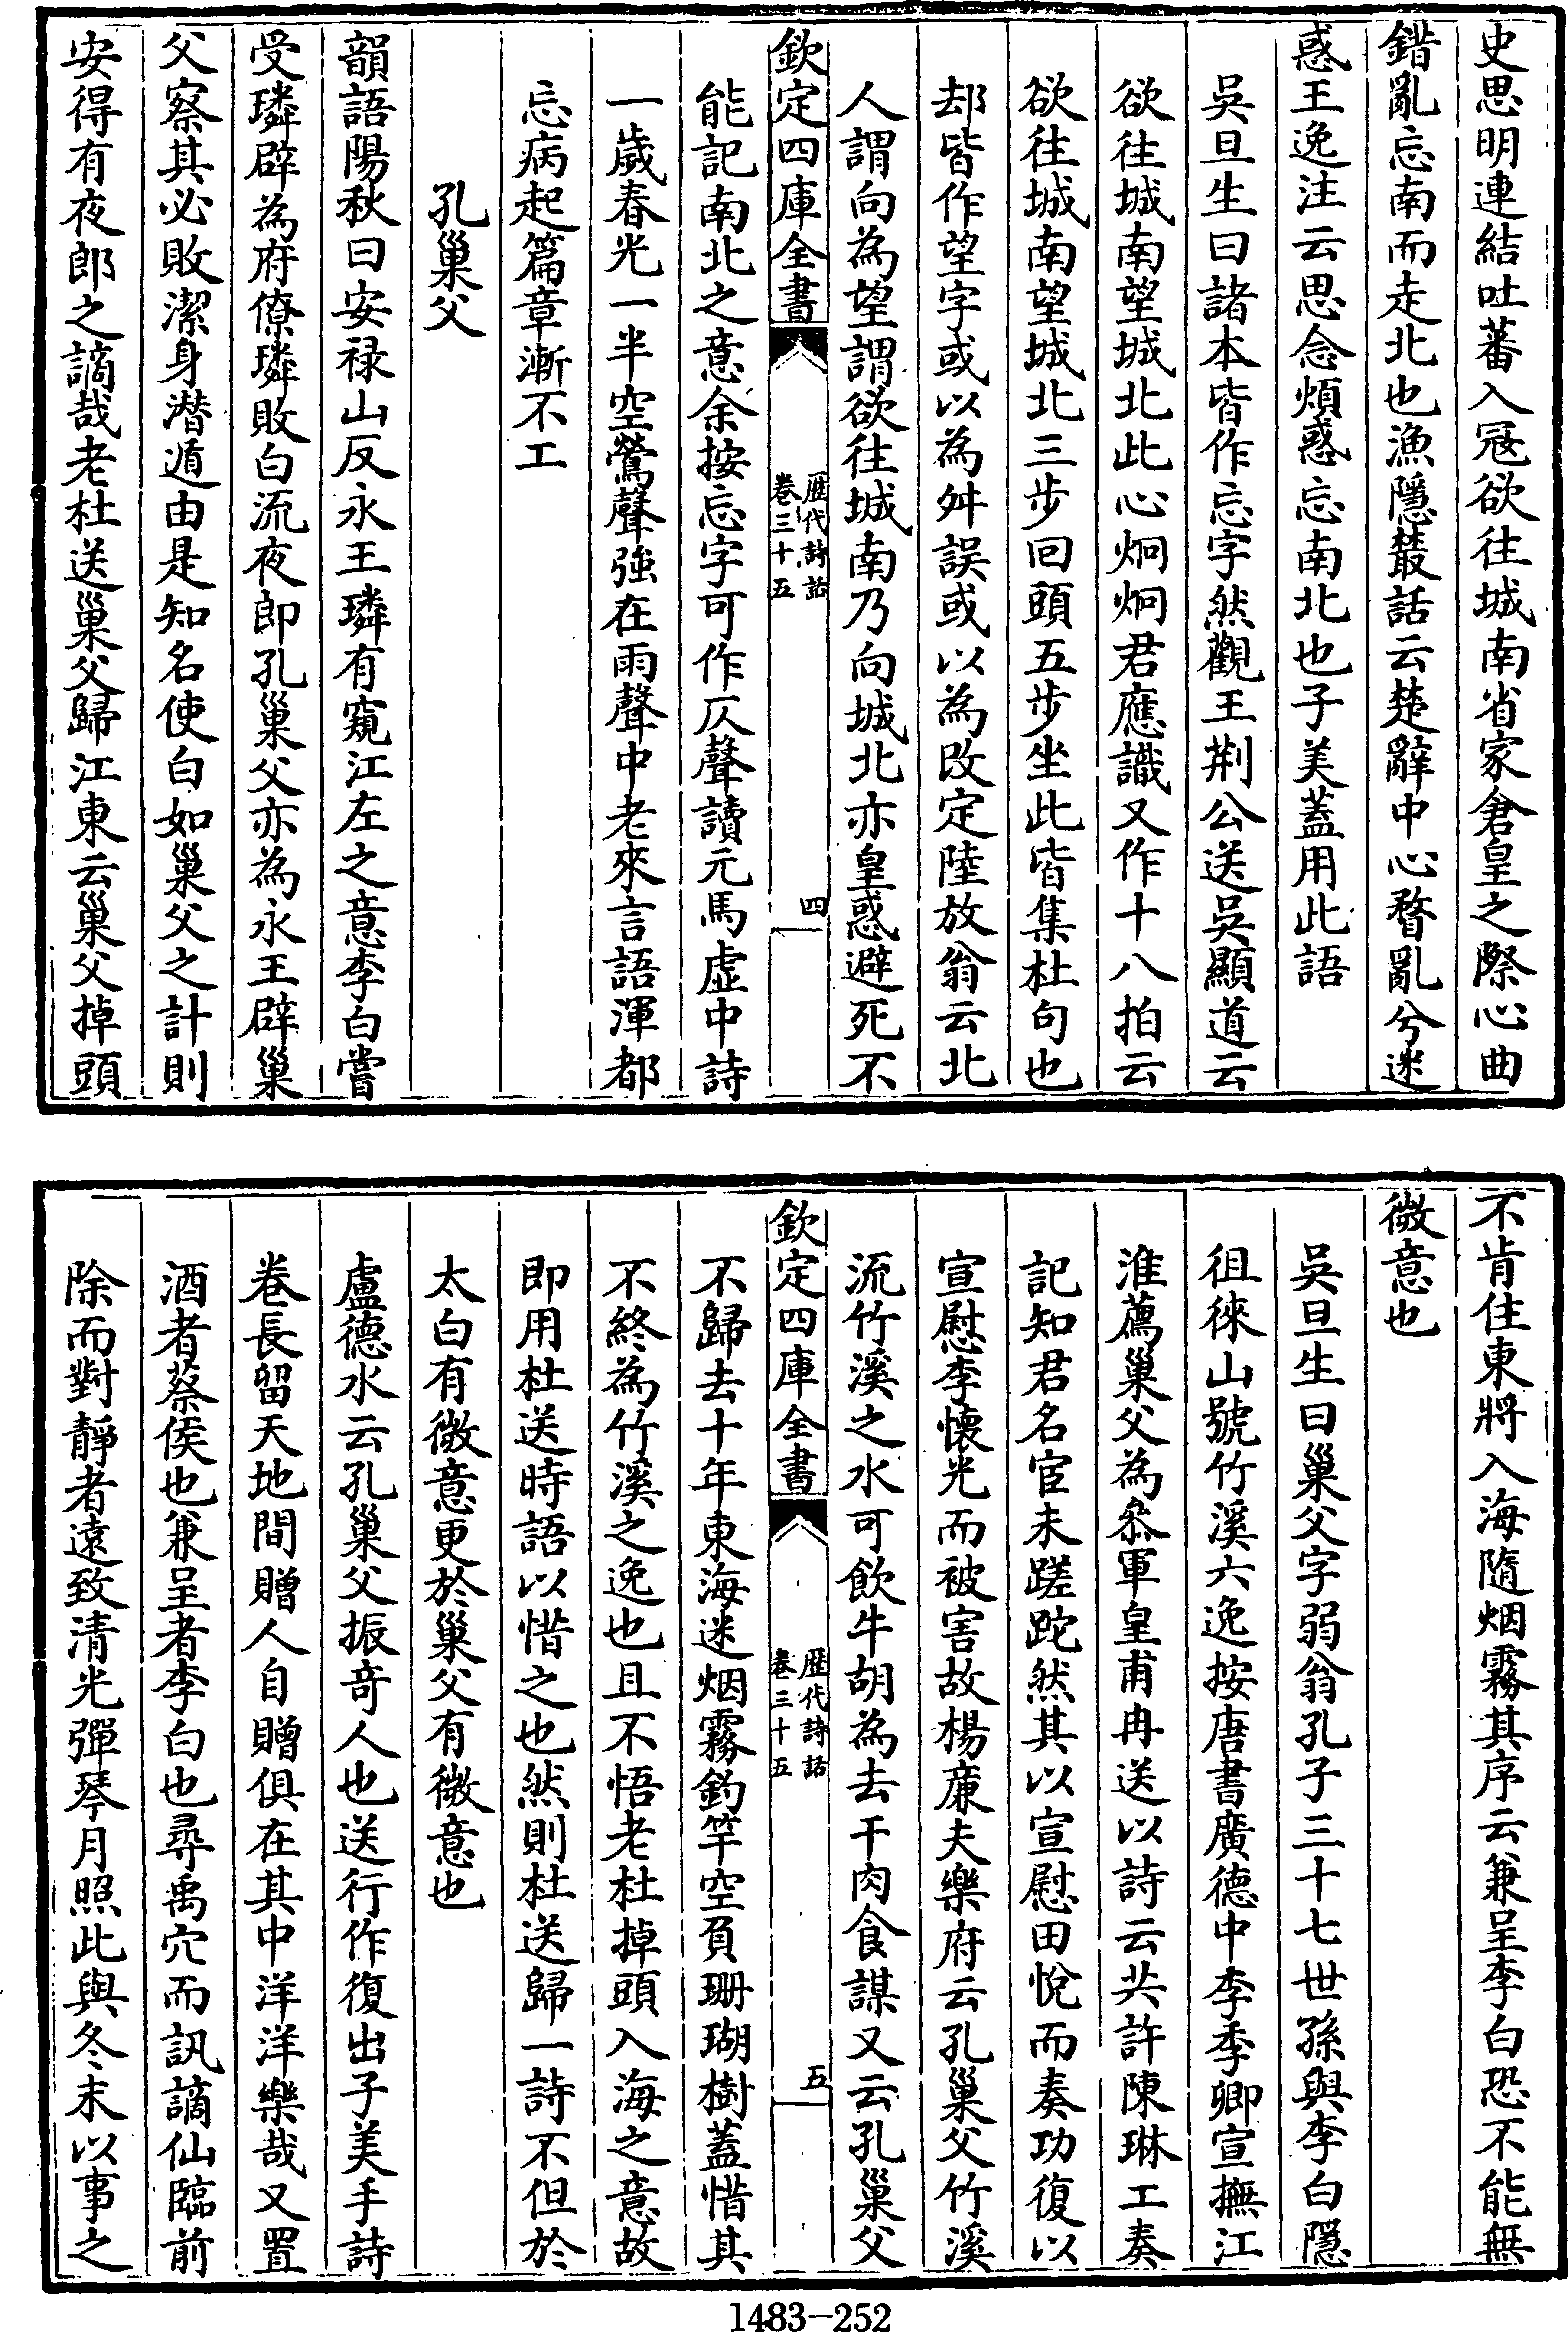 史思明連結吐蕃入冦欲往城南省家倉皇之際心曲
錯亂忘南而走北也漁隱叢話云楚辭中心瞀亂兮迷
惑王逸注云思念煩惑忘南北也子美蓋用此語
吳旦生曰諸本皆作忘字然觀王荆公送吳顯道云
欲往城南望城北此心炯炯君應識又作十八拍云
欲往城南望城北三步回頭五步坐此皆集杜句也
却皆作望字或以為舛誤或以為改定陸放翁云北
人謂向為望謂欲往城南乃向城北亦皇惑避死不
欽定四庫全書
歴代詩話
卷三十五
四
能記南北之意余按忘字可作仄聲讀元馬虛中詩
一歲春光一半空鶯聲強在雨聲中老來言語渾都
忘病起篇章漸不工
孔巢父
韻語陽秋曰安禄山反永王璘有窺江左之意李白嘗
受璘辟為府僚璘敗白流夜郎孔巢父亦為永王辟巢
父察其必敗潔身潜遁由是知名使白如巢父之計則
安得有夜郎之謫哉老杜送巢父歸江東云巢父掉頭
不肯住東將入海隨烟霧其序云兼呈李白恐不能無
微意也
吳旦生曰巢父字弱翁孔子三十七世孫與李白隱
徂徠山號竹溪六逸按唐書廣德中李季卿宣撫江
淮薦巢父為叅軍皇甫冉送以詩云共許陳琳工奏
記知君名宦未蹉跎然其以宣慰田悅而奏功復以
宣慰李懷光而被害故楊亷夫樂府云孔巢父竹溪
流竹溪之水可飲牛胡為去干肉食謀又云孔巢父
欽定四庫全書
歴代詩話
卷三十五
五
不歸去十年東海迷烟霧釣竿空負珊瑚樹蓋惜其
不終為竹溪之逸也且不悟老杜掉頭入海之意故
即用杜送時語以惜之也然則杜送歸一詩不但於
太白有微意更於巢父有微意也
盧德水云孔巢父振奇人也送行作復出子美手詩
卷長留天地間贈人自贈俱在其中洋洋樂哉又置
酒者蔡侯也兼呈者李白也尋禹穴而訊謫仙臨前
除而對靜者遠致清光彈琴月照此與冬末以事之
1483-252